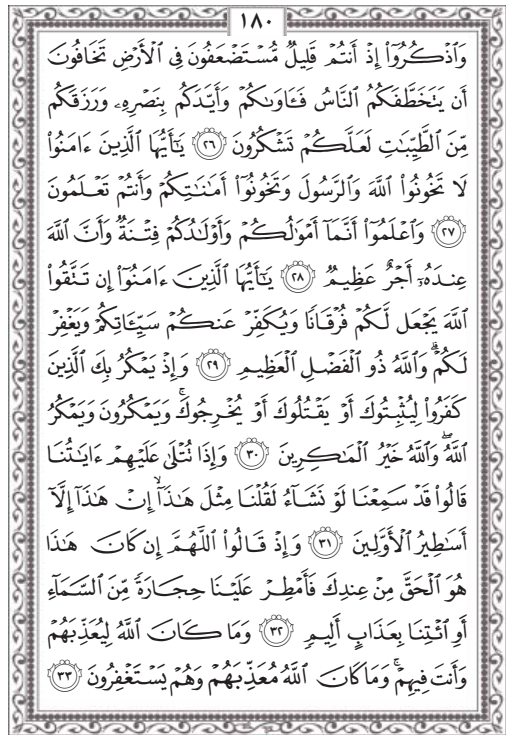 ١٨٠
وَاذْكُرُوٓا۟ إِذْ أَنتُمْ قَلِيلٌ مُّسْتَضْعَفُونَ فِى ٱلْأَرْضِ تَخَافُونَ
أَن يَتَخَطَّفَكُمُ ٱلنَّاسُ فَـَٔاوَىٰكُمْ وَأَيَّدَكُم بِنَصْرِهِۦ وَرَزَقَكُم
مِّنَ ٱلطَّيِّبَـٰتِ لَعَلَّكُمْ تَشْكُرُونَ ٢٦ يَـٰٓأَيُّهَا ٱلَّذِينَ ءَامَنُوا۟
لَا تَخُونُوا۟ ٱللَّهَ وَٱلرَّسُولَ وَتَخُونُوٓا۟ أَمَـٰنَـٰتِكُمْ وَأَنتُمْ تَعْلَمُونَ
٢٧ وَٱعْلَمُوٓا۟ أَنَّمَآ أَمْوَٰلُكُمْ وَأَوْلَـٰدُكُمْ فِتْنَةٌ وَأَنَّ ٱللَّهَ
عِندَهُۥٓ أَجْرٌ عَظِيمٌ ٢٨ يَـٰٓأَيُّهَا ٱلَّذِينَ ءَامَنُوٓا۟ إِن تَتَّقُوا۟
ٱللَّهَ يَجْعَل لَّكُمْ فُرْقَانًا وَيُكَفِّرْ عَنكُمْ سَيِّـَٔاتِكُمْ وَيَغْفِرْ
لَكُمْ ۗ وَٱللَّهُ ذُو ٱلْفَضْلِ ٱلْعَظِيمِ ٢٩ وَإِذْ يَمْكُرُ بِكَ ٱلَّذِينَ
كَفَرُوا۟ لِيُثْبِتُوكَ أَوْ يَقْتُلُوكَ أَوْ يُخْرِجُوكَ ۚ وَيَمْكُرُونَ وَيَمْكُرُ
ٱللَّهُ ۖ وَٱللَّهُ خَيْرُ ٱلْمَـٰكِرِينَ ٣٠ وَإِذَا تُتْلَىٰ عَلَيْهِمْ ءَايَـٰتُنَا
قَالُوا۟ قَدْ سَمِعْنَا لَوْ نَشَآءُ لَقُلْنَا مِثْلَ هَـٰذَآ ۙ إِنْ هَـٰذَآ إِلَّآ
أَسَـٰطِيرُ ٱلْأَوَّلِينَ ٣١ وَإِذْ قَالُوا۟ ٱللَّهُمَّ إِن كَانَ هَـٰذَا
هُوَ ٱلْحَقَّ مِنْ عِندِكَ فَأَمْطِرْ عَلَيْنَا حِجَارَةً مِّنَ ٱلسَّمَآءِ
أَوِ ٱئْتِنَا بِعَذَابٍ أَلِيمٍ ٣٢ وَمَا كَانَ ٱللَّهُ لِيُعَذِّبَهُمْ
وَأَنتَ فِيهِمْ ۚ وَمَا كَانَ ٱللَّهُ مُعَذِّبَهُمْ وَهُمْ يَسْتَغْفِرُونَ ٣٣